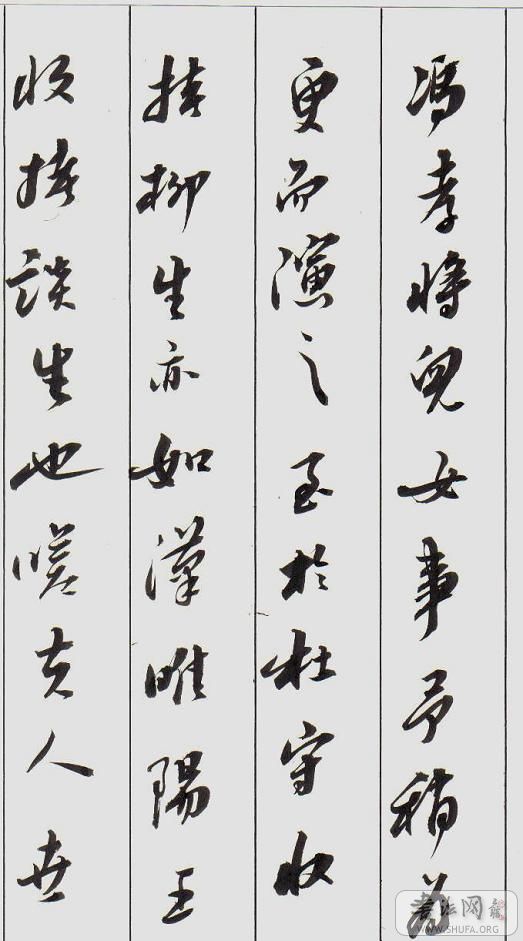 馮孝將兒女事予稍為
更而演之至於杜守收
拷柳生亦如漢睢陽王
收拷談生也嗟夫人世
書法网
WWW.SHUFA.ORG